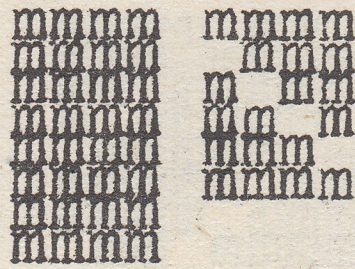 mmmm
mmmm
mmmm
mmmm
mmmm
mmmm
mmmm
mmmm
mmmm
 mmm
m mm
mm m
mmm
mmmm